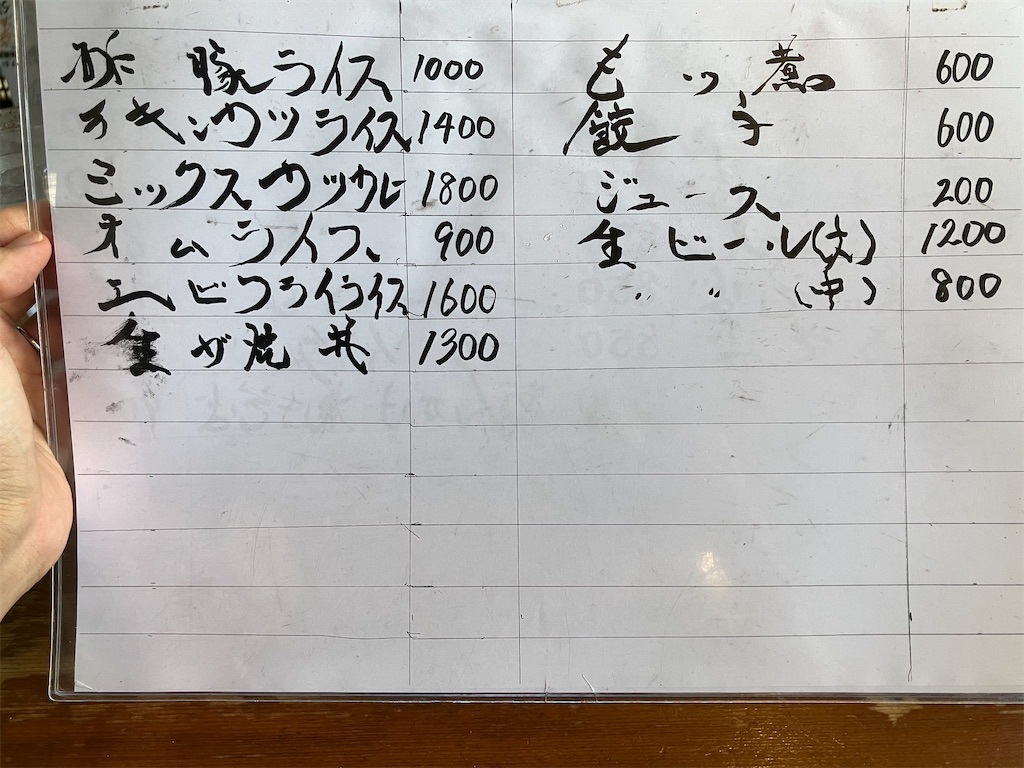 酢豚ライス 1000
チキンカツライス 1400
ミックスカツカレー 1800
オムライス 900
エビフライライス 1600
生ガ焼丼 1300
もツ煮 600
餃子 600
ジュース 200
生ビール(大) 1200
〃 〃 (中) 800